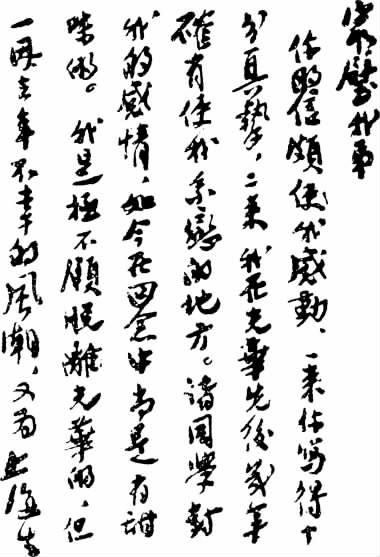 家璧我弟
你的信頗使我感動，一來你寫得十
分真摯，二來我在光華先後幾年
確有使我系戀的地方。諸同學對
我的感情，如今在回念中尚是有甜
味的。我是極不願脫離光華的，但
一因去年不幸的風潮，又為上海生